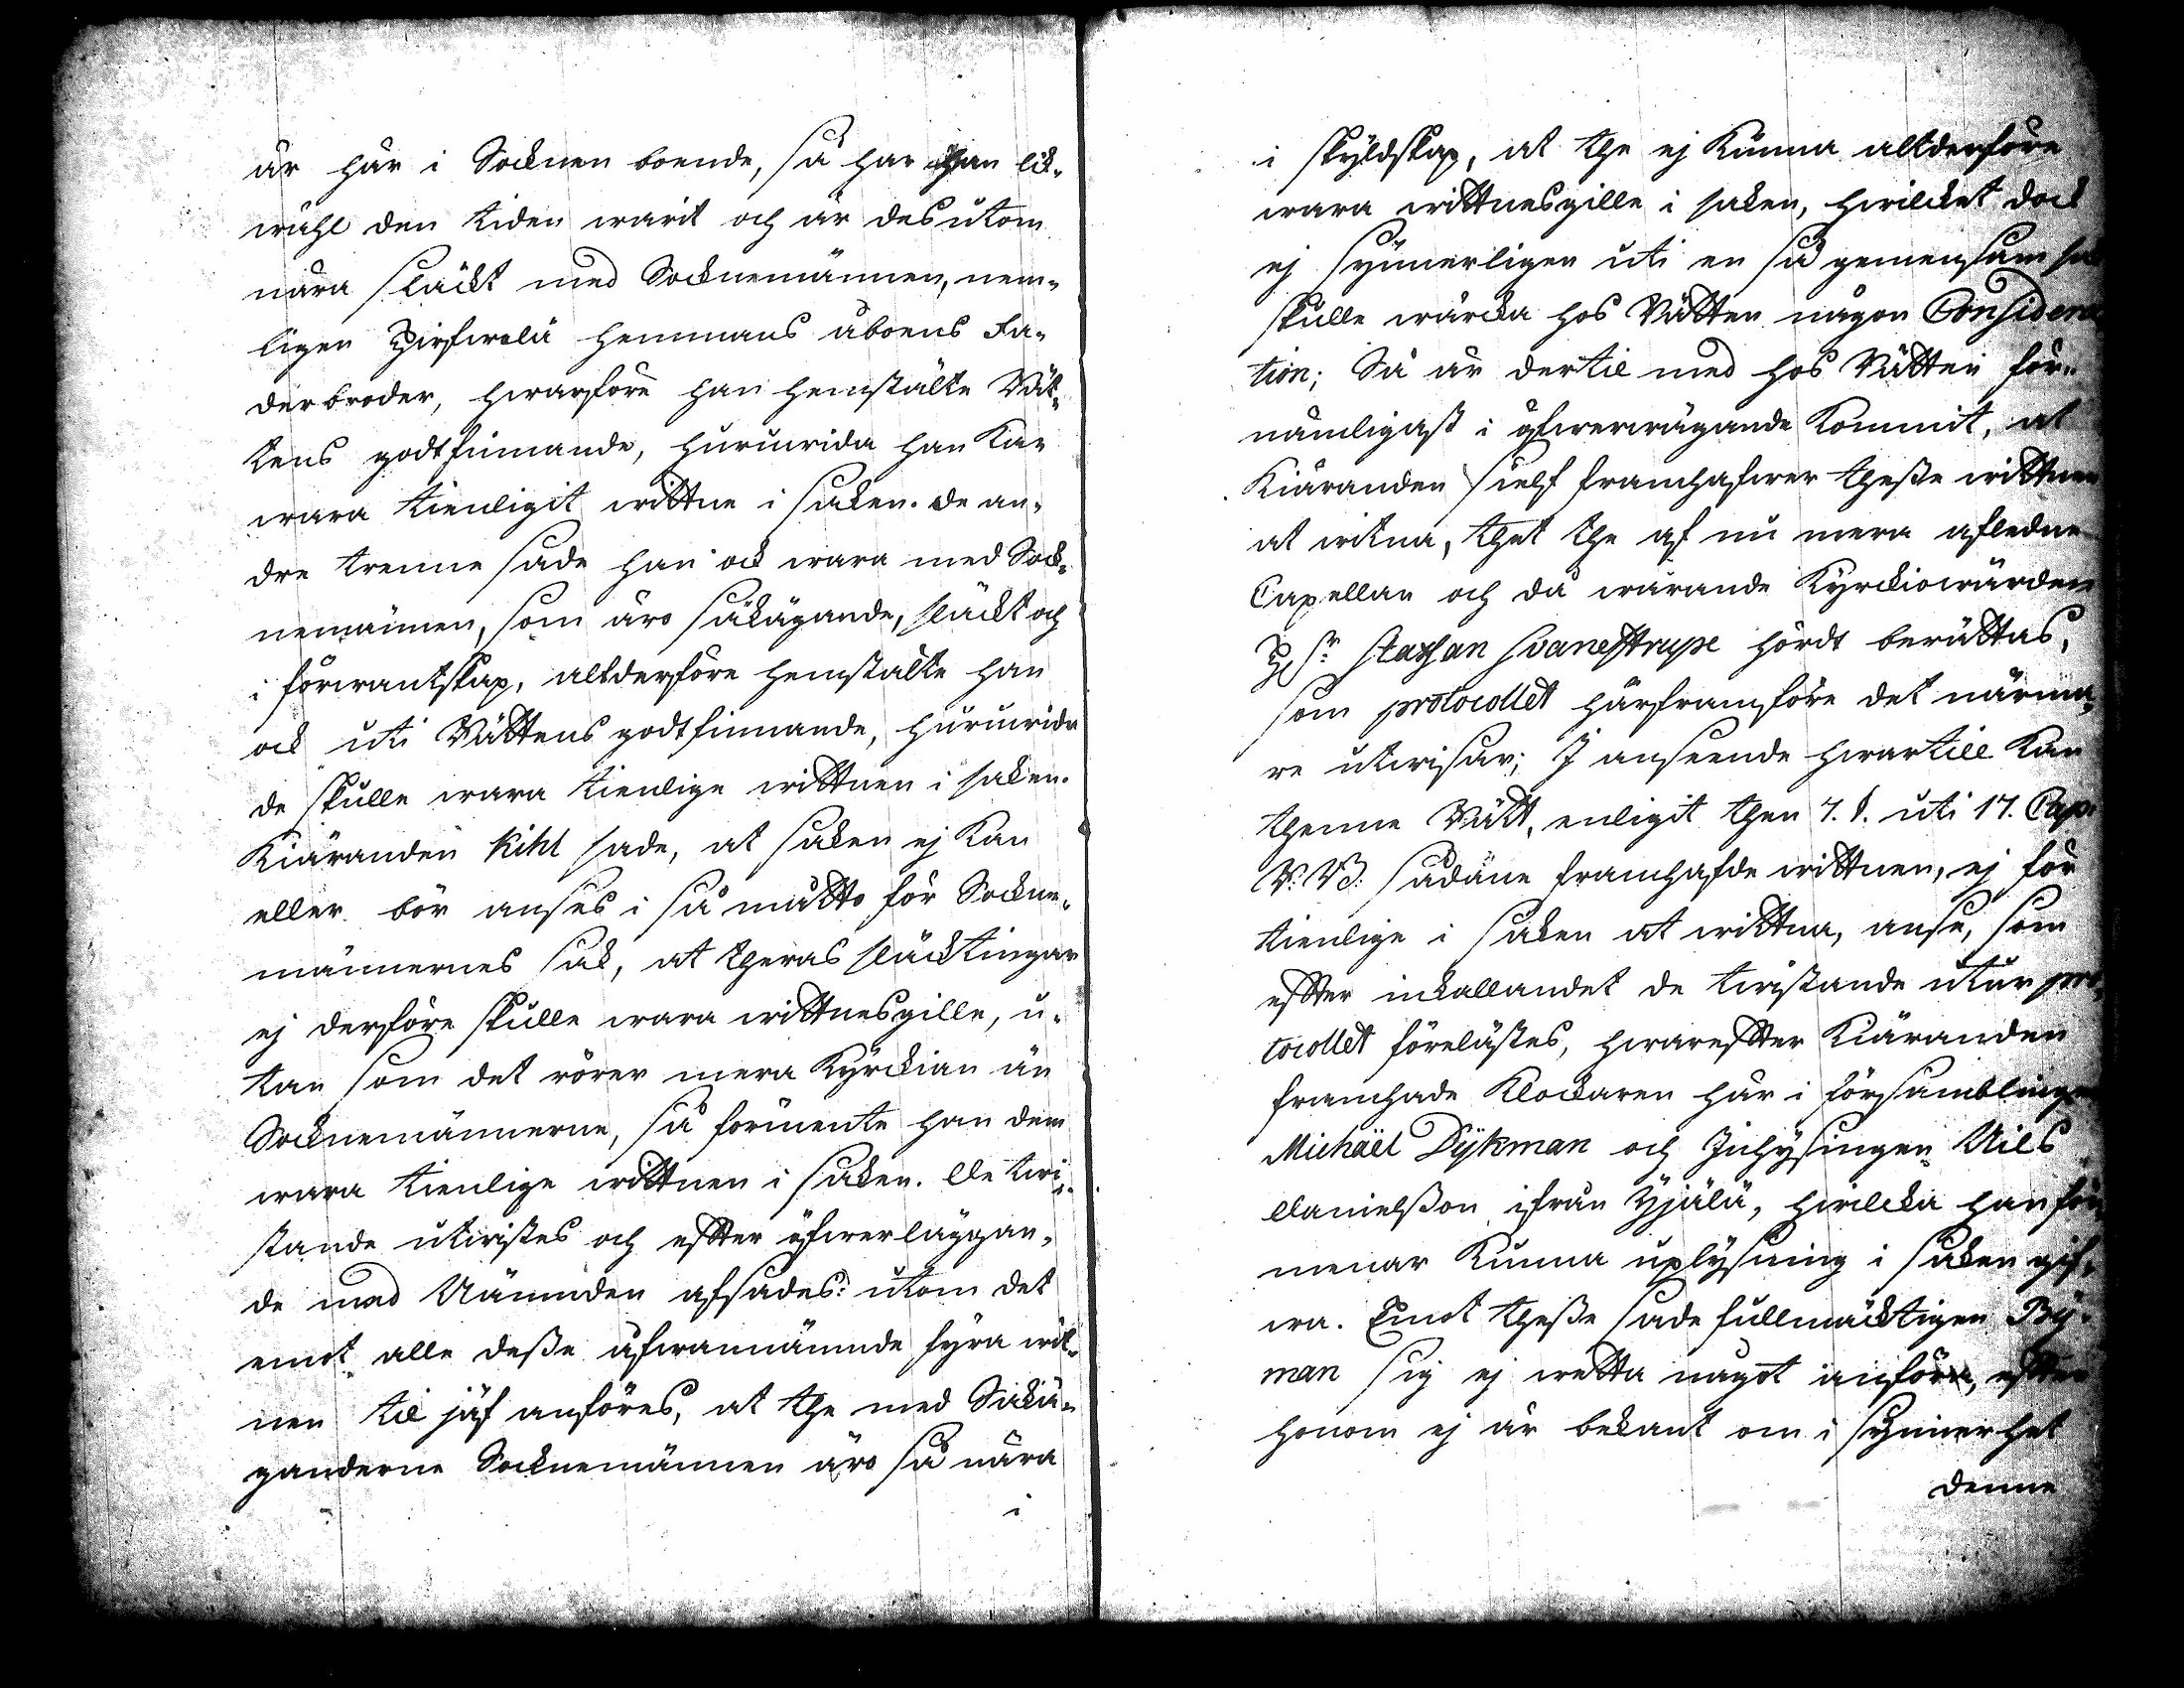 är här i Socknen boende, så har han lik-
wähl den tiden warit och är desutom
nära släckt med Socknemännen, nem-
ligen Hirfwelä hemmans åboens Fa-
derbroder, hwarföre han hemstälte Rät-
tens godtfinnande, huruwida han kan
wara tienligit wittne i saken. De an-
dre trenne sade han ock wara med Sock-
nemännen, som äro sakägande, släckt och
i förwantskap, altderföre hemstälte han
ock uti Rättens godtfinnande, huruwida
de skulle wara tienlige wittnen i saken.
Kiäranden Kihl sade, at saken ej kan
eller bör anses i så måtto för Sockne-
männernes sak, at theras släcktingar
ej derföre skulle wara wittnesgille, u-
tan som det rörer mera Kyrckian än
Socknemännerne, så förmente han dem
wara tienlige wittnen i saken. De twi-
stande utwistes och effter öfwerläggan-
de med Nämnden afsades: utom det
emot alle desse åfwannämnde fyra wit-
nen til jäf anföres, at the med Sakiä-
ganderne Socknemännen äro så nära
i
i skyldskap, at the ej kunna altderföre
wara wittnesgille i saken, hwilcket dock
ej synnerligen uti en så gemensam sak
skulle wärcka hos Rätten någon Considera
tion; Så är dertil med hos Rätten för-
nämligast i öfwerwägande kommit, at
Kiäranden sielf framhafwer thesse wittnen
at witna, thet the af nu mera afledne
Capellan och då warande Kyrckiowärden
H Sr Staphan Svanestrupe hördt berättas,
som protocollet härframföre det närma-
re utwisar; I anseende hwartill kan
thenne Rätt, enligit then 7. §. uti 17. Cap.
R: B: sådane framhafde wittnen, ej för
tienlige i saken at wittna, anse, som
effter inkallandet de twistande utur pro-
tocollet förelästes, hwareffter Kiäranden
framhade Klockaren här i församblingen
Michaël Dykman och Inhysingen Nils
Danielsson ifrån Yjälä, hwilcka han för-
menar kunna uplysning i saken gif-
wa. Emot thesse sade fullmäcktigen By-
man sig ej wetta något anföra, effter
honom ej är bekant om i synnerhet
denne